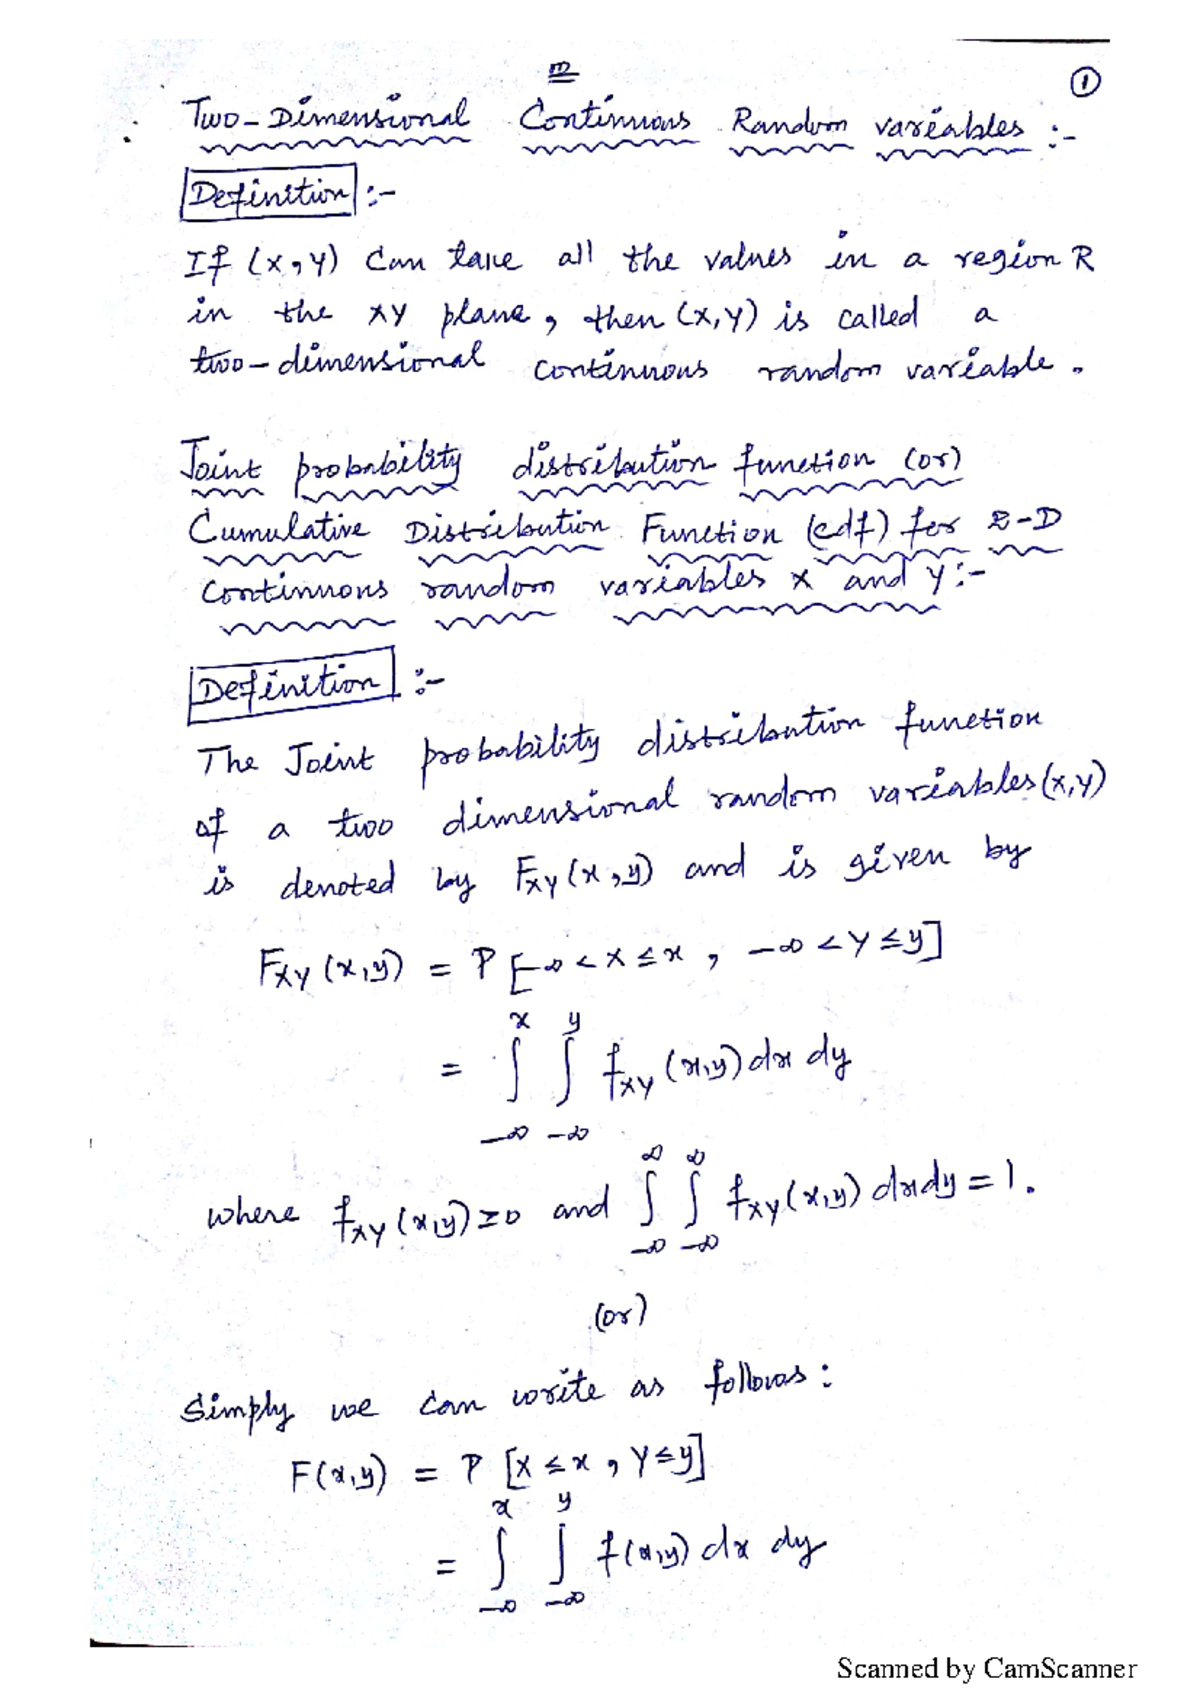 ①
Two-Dimensional Continuous Random variables :-
Definition :-
If (X, Y) can take all the values in a region R
in the XY plane, then (X, Y) is called a
two-dimensional continuous random variable.
Joint probability distribution function (or)
Cumulative Distribution Function (cdf) for 2-D
Continuous random variables X and Y :-
Definition :-
The Joint probability distribution function
of a two dimensional random variables (X, Y)
is denoted by F_{XY}(x, y) and is given by
F_{XY}(x, y) = P[-∞ < X ≤ x, -∞ < Y ≤ y]
= ∫_{-∞}^{x} ∫_{-∞}^{y} f_{XY}(x, y) dx dy
where f_{XY}(x, y) ≥ 0 and ∫_{-∞}^{∞} ∫_{-∞}^{∞} f_{XY}(x, y) dx dy = 1.
(or)
Simply we can write as follows :
F(x, y) = P [X ≤ x, Y ≤ y]
= ∫_{-∞}^{x} ∫_{-∞}^{y} f(x, y) dx dy
Scanned by CamScanner